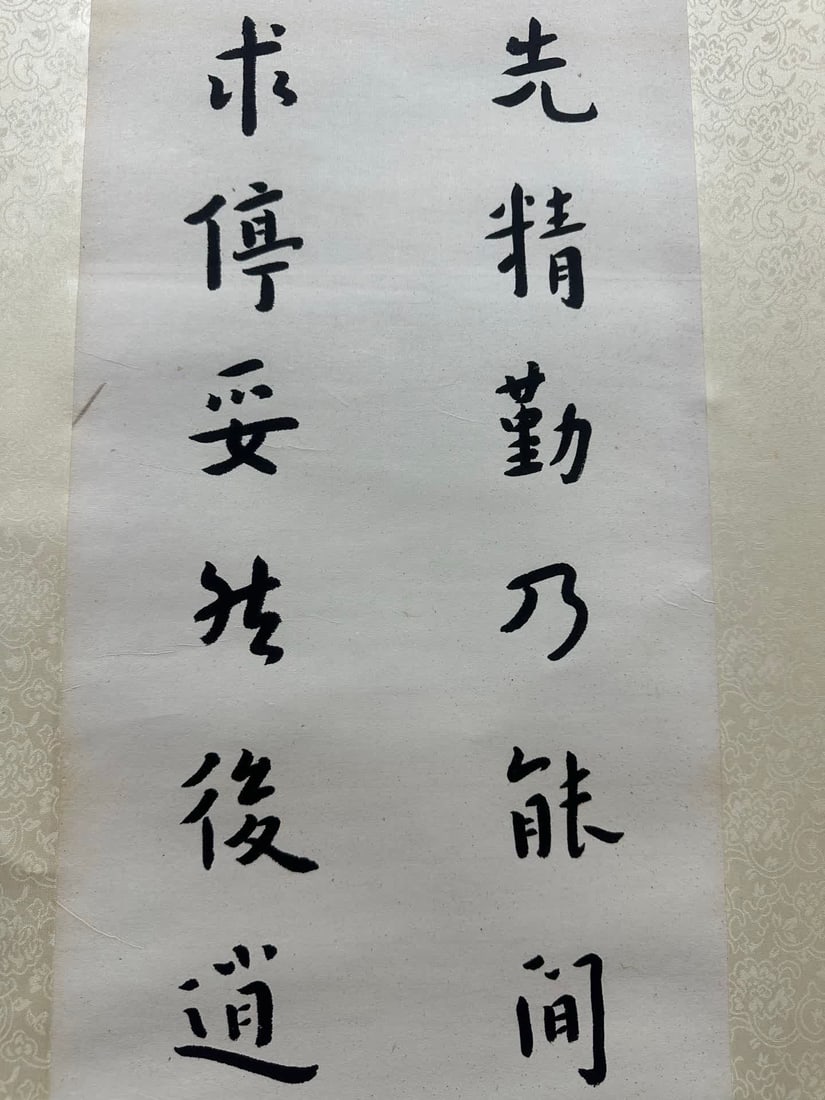 先精勤乃能間
求停妥然後逍